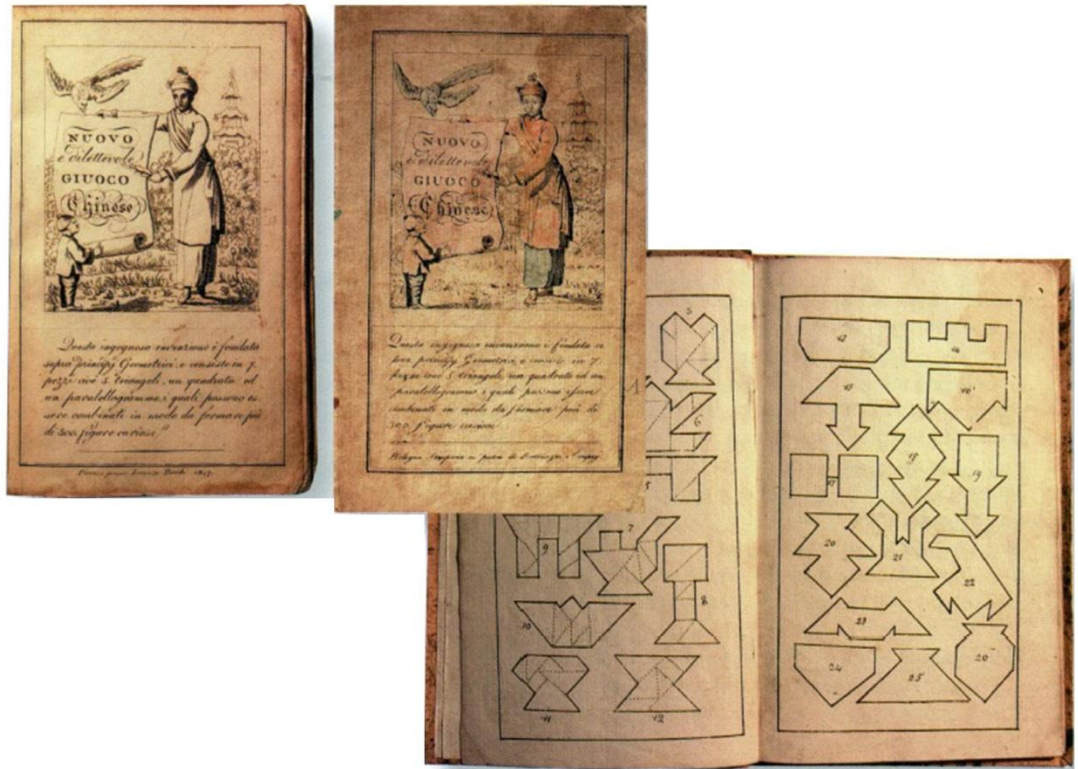 NUOVO
e dilettevole
GIUOCO
Chinese
Questa ingegnosa invenzione è fondata
sopra principj Geometrici, e consiste in 7.
pezzi cioè 5 triangoli, un quadrato ed
un paralellogrammo, i quali possono es-
sere combinati in modo da formare più
di 300 figure curiose
Firenze presso Lorenzo
NUOVO
e dilettevole
GIUOCO
Chinese
Questa ingegnosa invenzione è fondata so
pra principj Geometrici e consiste in 7.
pezzi cioè 5 triangoli, un quadrato ed un
paralellogrammo, i quali possono essere
combinati in modo da formare più di
300 figure curiose
Bologna
6
9
7
8
10
11
12
13
14
15
16
17
18
19
20
21
22
23
24
25